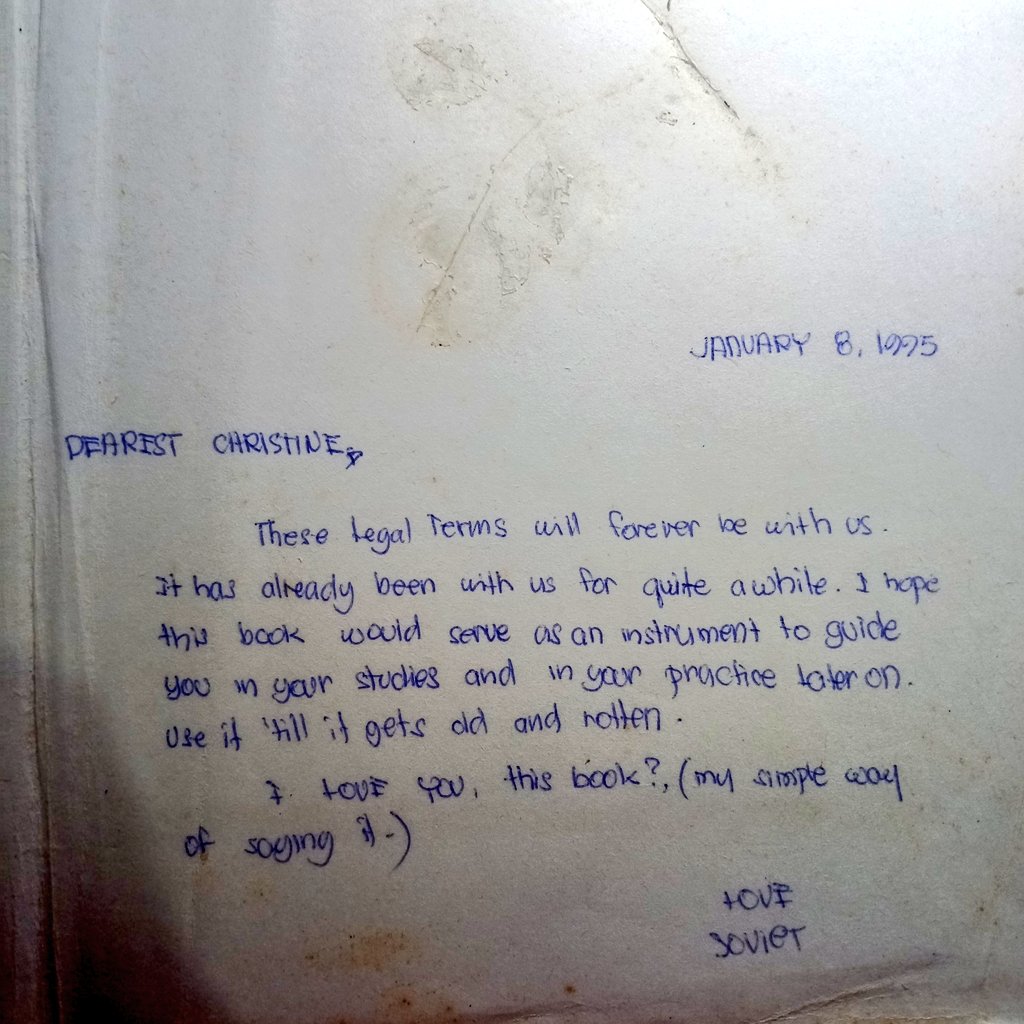 JANUARY 8, 1995
DEAREST CHRISTINE,
These Legal Terms will forever be with us.
It has already been with us for quite awhile. I hope
this book would serve as an instrument to guide
you in your studies and in your practice later on.
Use it 'till it gets old and rotten.
I LOVE YOU, this book?, (my simple way
of saying it.)
LOVE
SOVIET